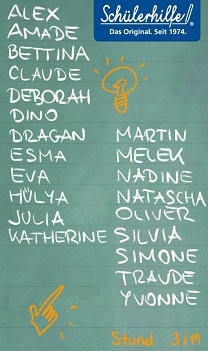 Schülerhilfe!®
Das Original. Seit 1974.
ALEX
AMADE
BETTINA
CLAUDE
DEBORAH
DINO
DRAGAN
ESMA
EVA
HÜLYA
JULIA
KATHERINE
MARTIN
MELEK
NADINE
NATASCHA
OLIVER
SILVIA
SIMONE
TRAUDE
YVONNE
Stand 3/19